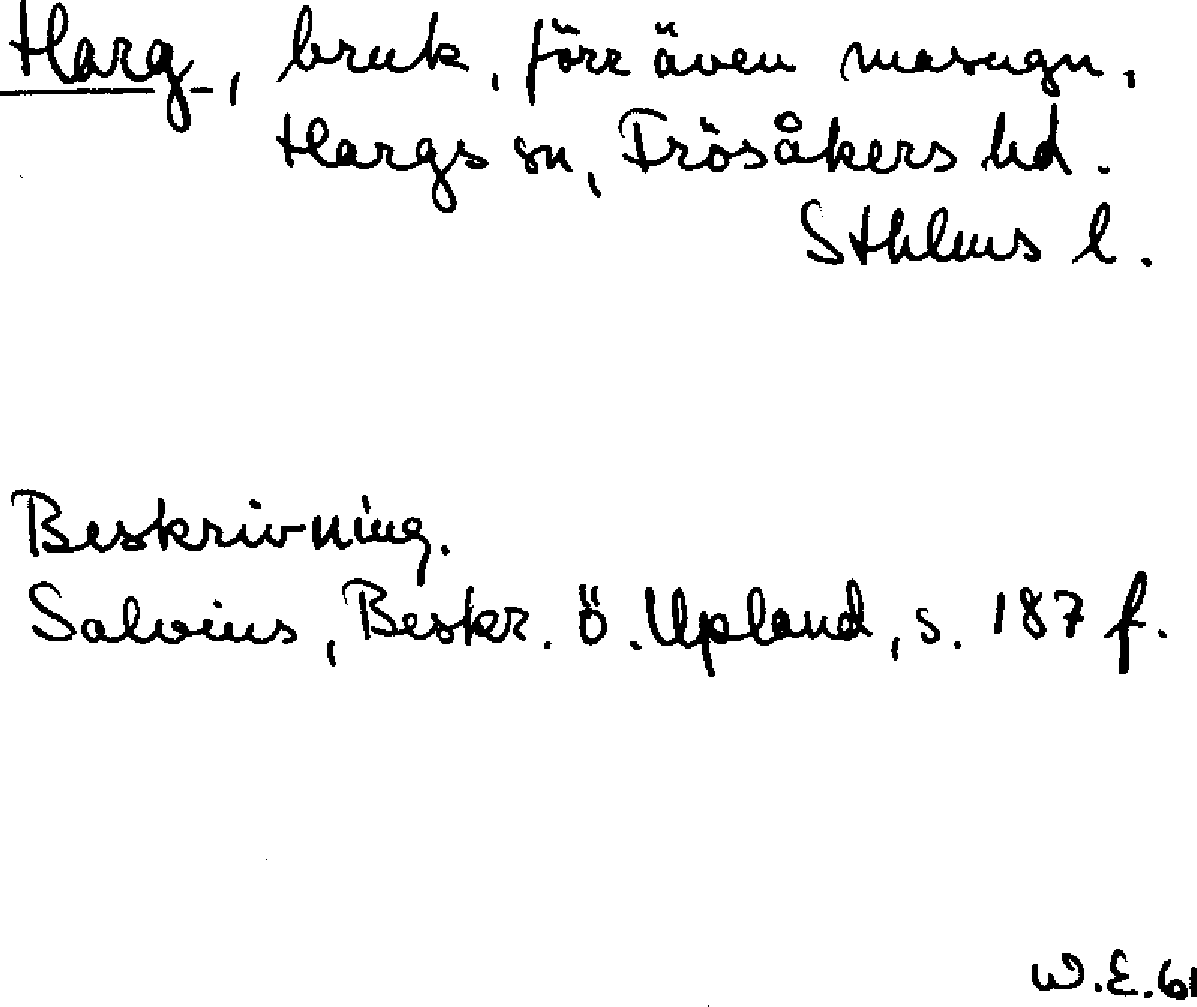 Harg, bruk, förr även masugn,
Hargs sn, Frösåkers hd.
Sthlms l.
Beskrivning.
Salvius, Beskr. ö. Upland, s. 187 f.
W.E.61